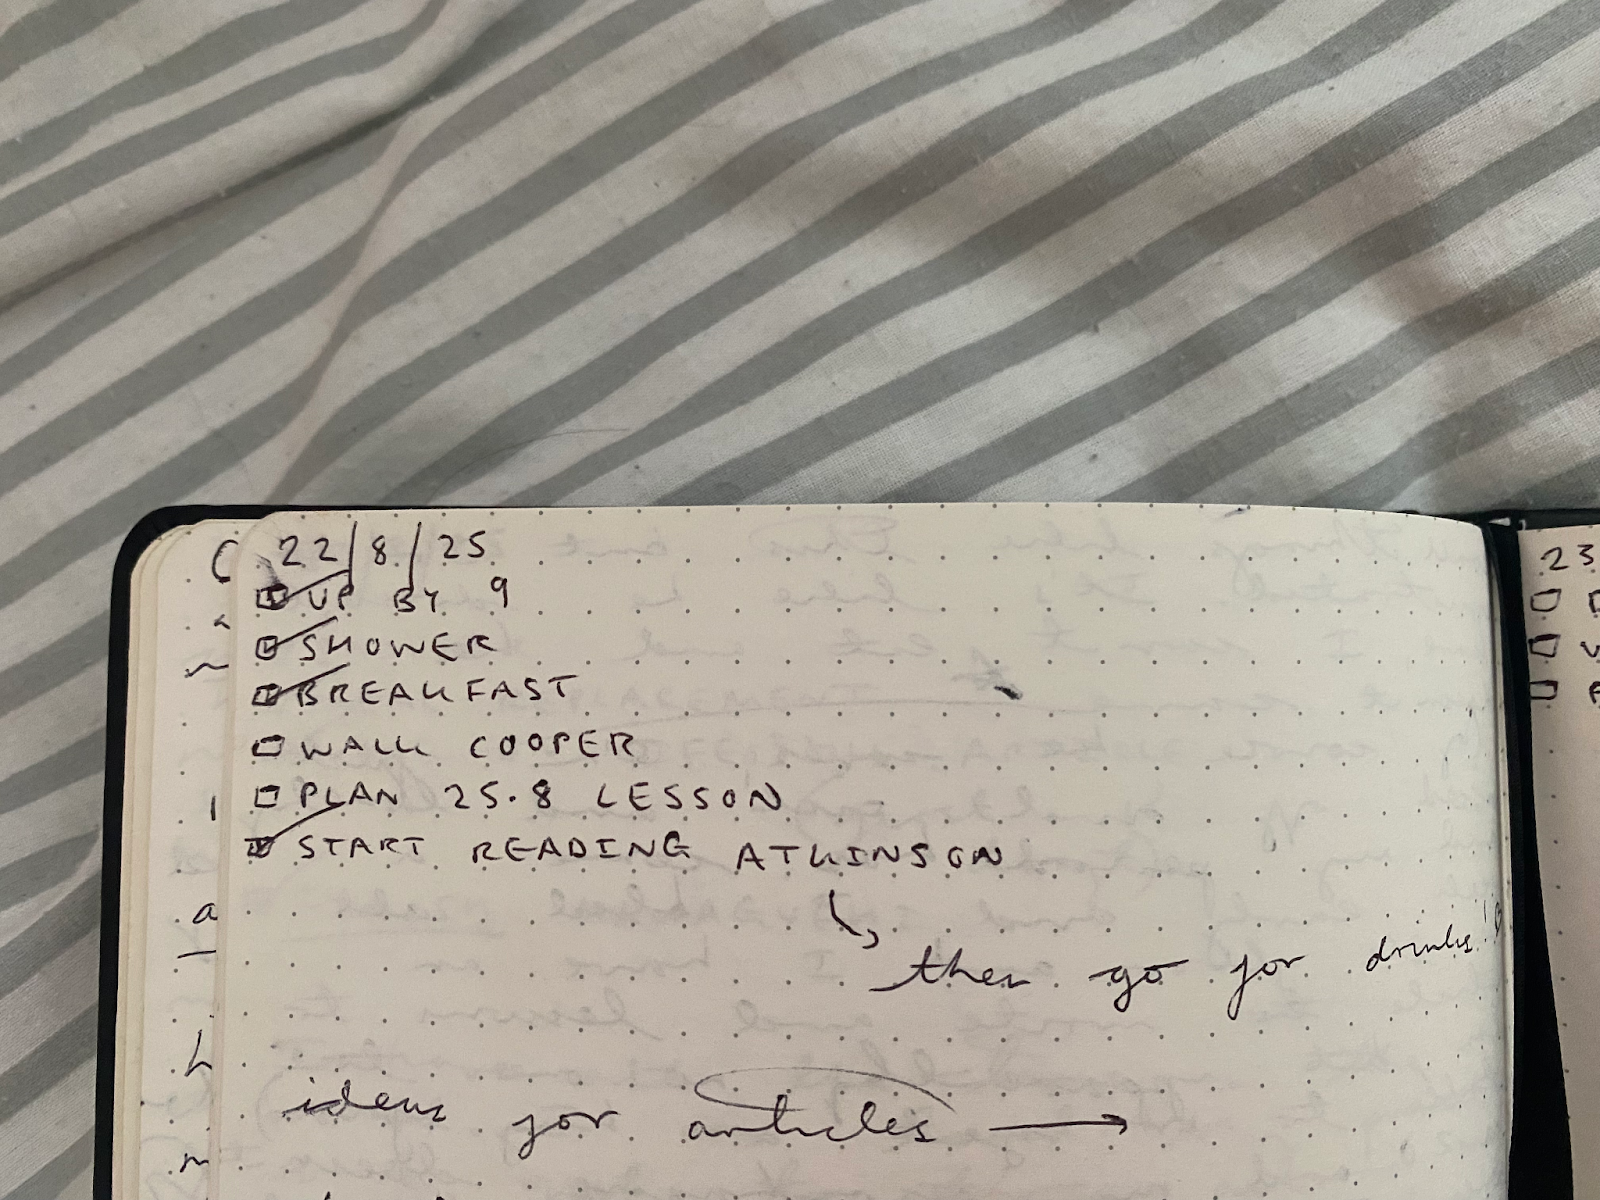 22/8/25
UP BY 9
SHOWER
BREAKFAST
WALK COOPER
PLAN 25.8 LESSON
START READING ATKINSON
then go for drinks!
ideas for articles
23